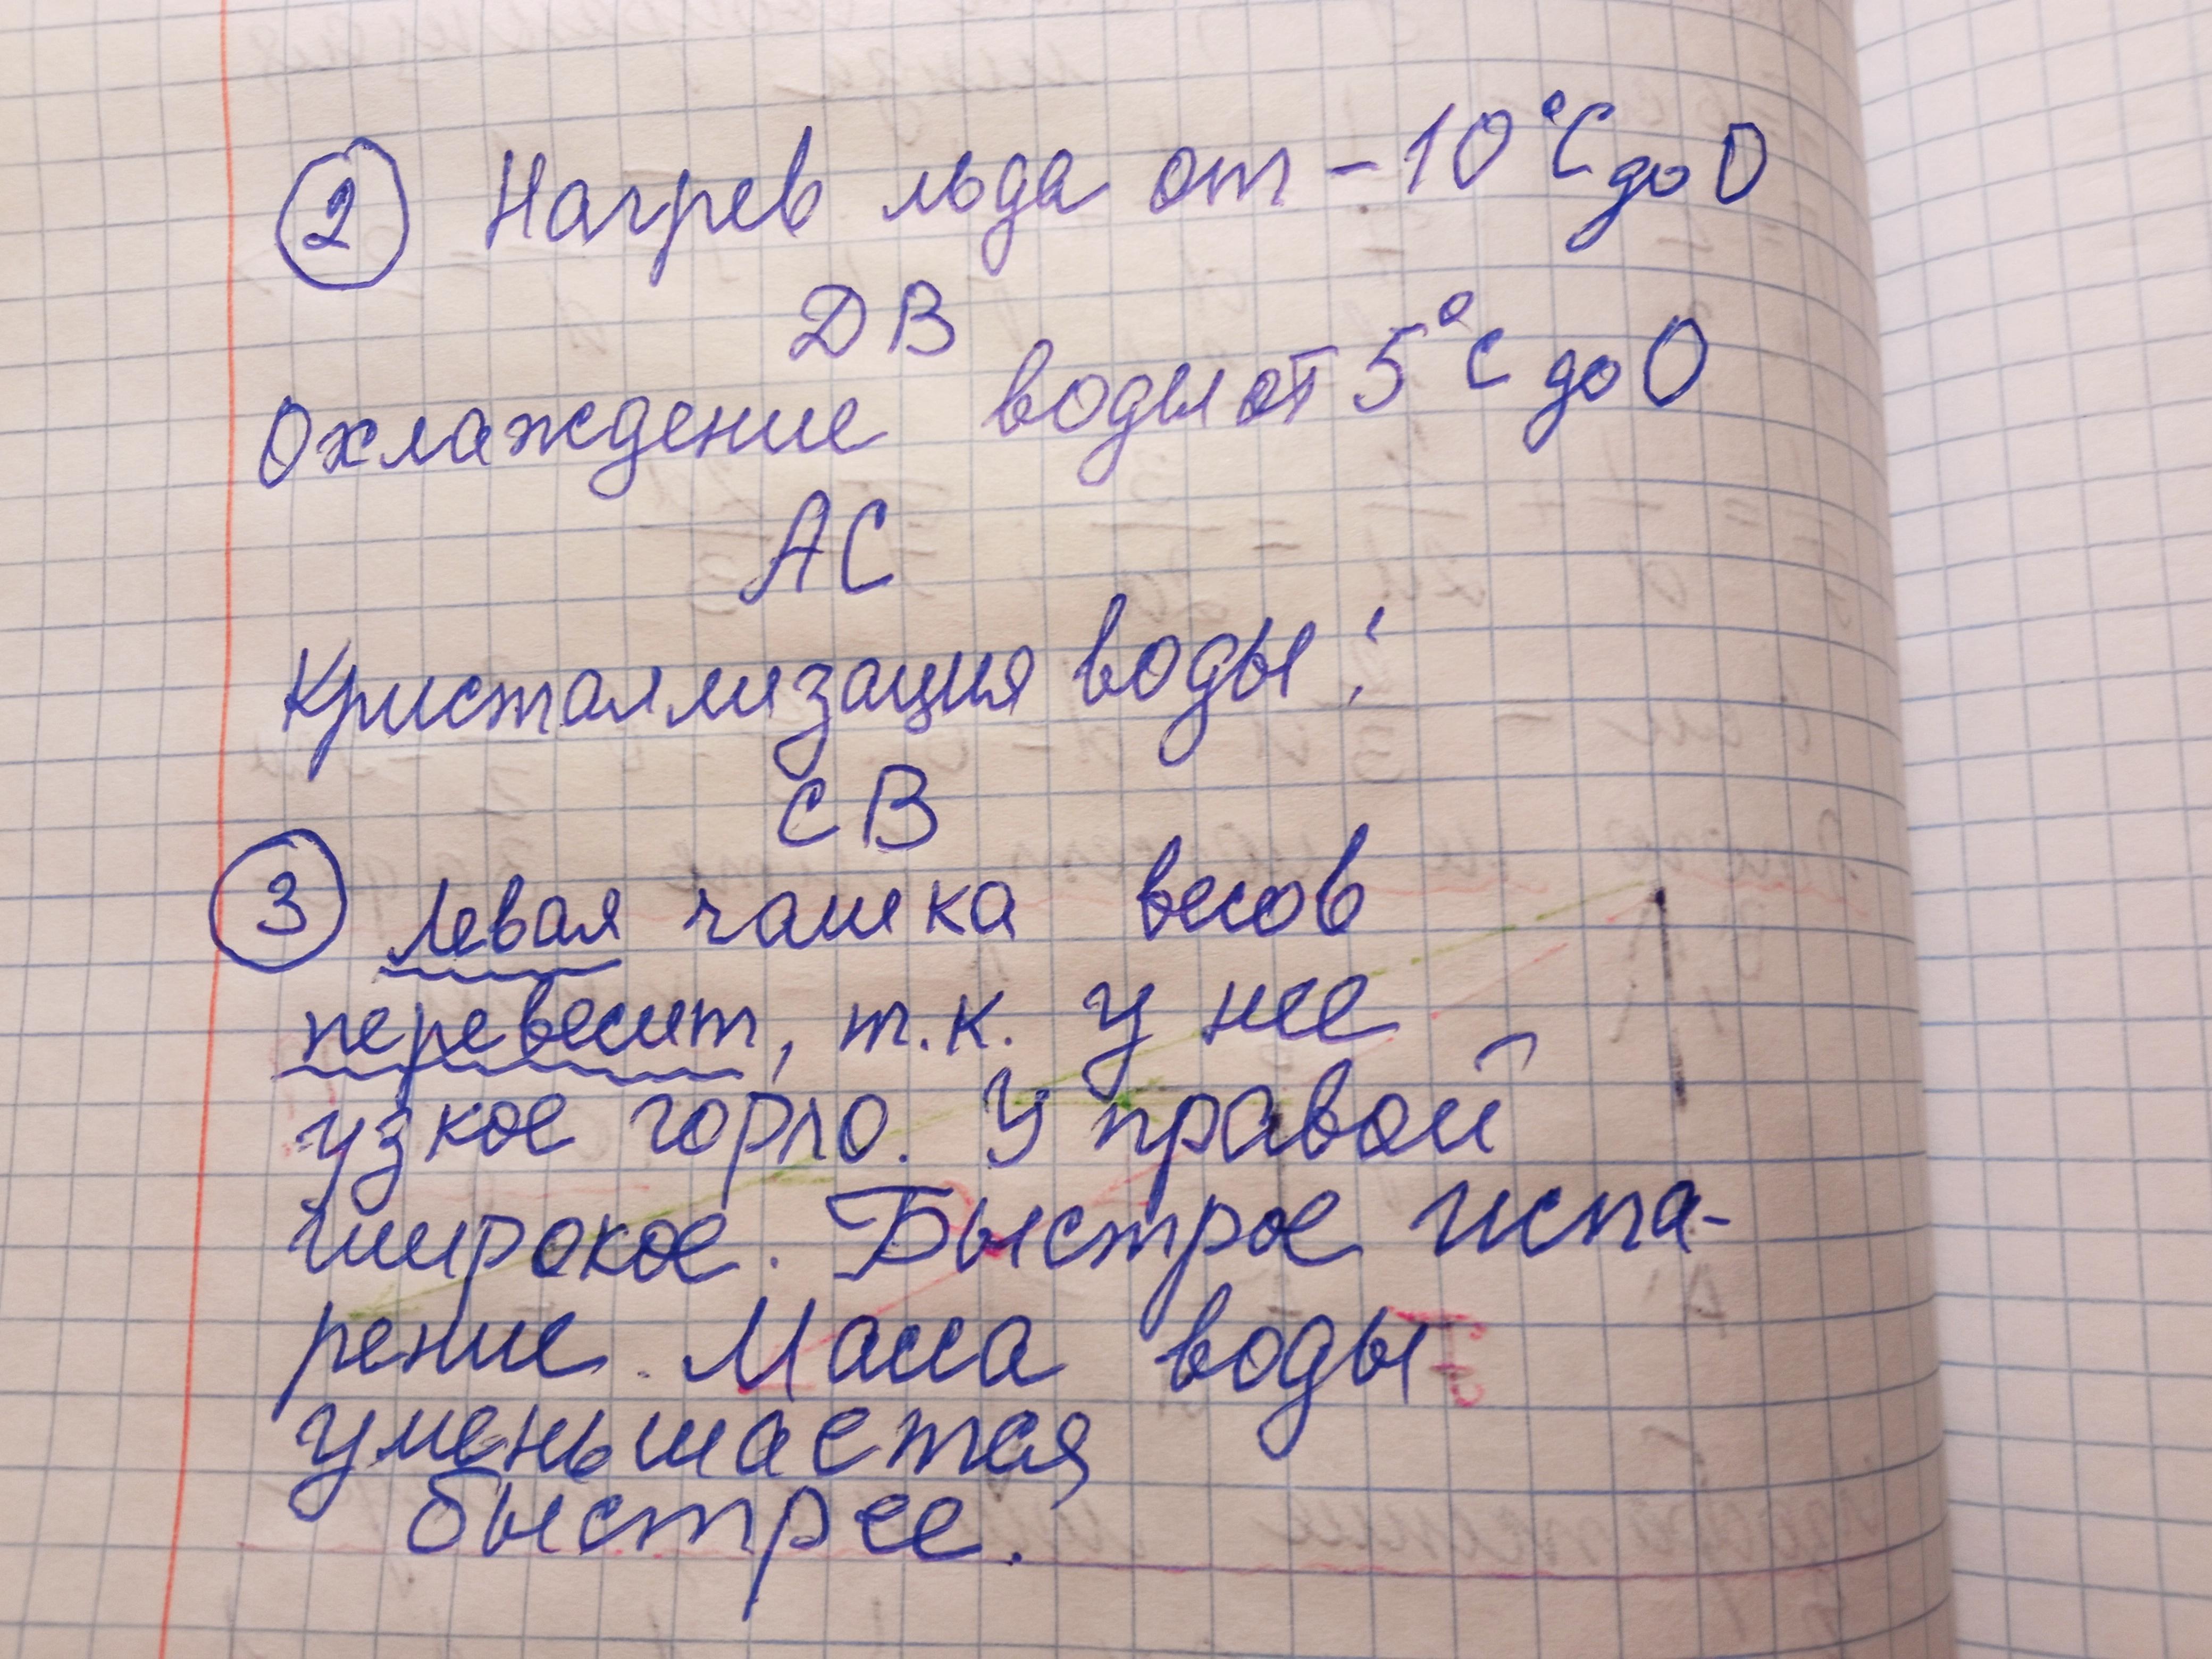 2 Нагрев льда от -10°С до 0
ДВ
Охлаждение воды от 5°С до 0
АС
Кристаллизация воды:
СВ
3 Левая чашка весов
перевесит, т.к. у нее
узкое горло. У правой
широкое. Быстрое испа-
рение. Масса воды
уменьшается
быстрее.